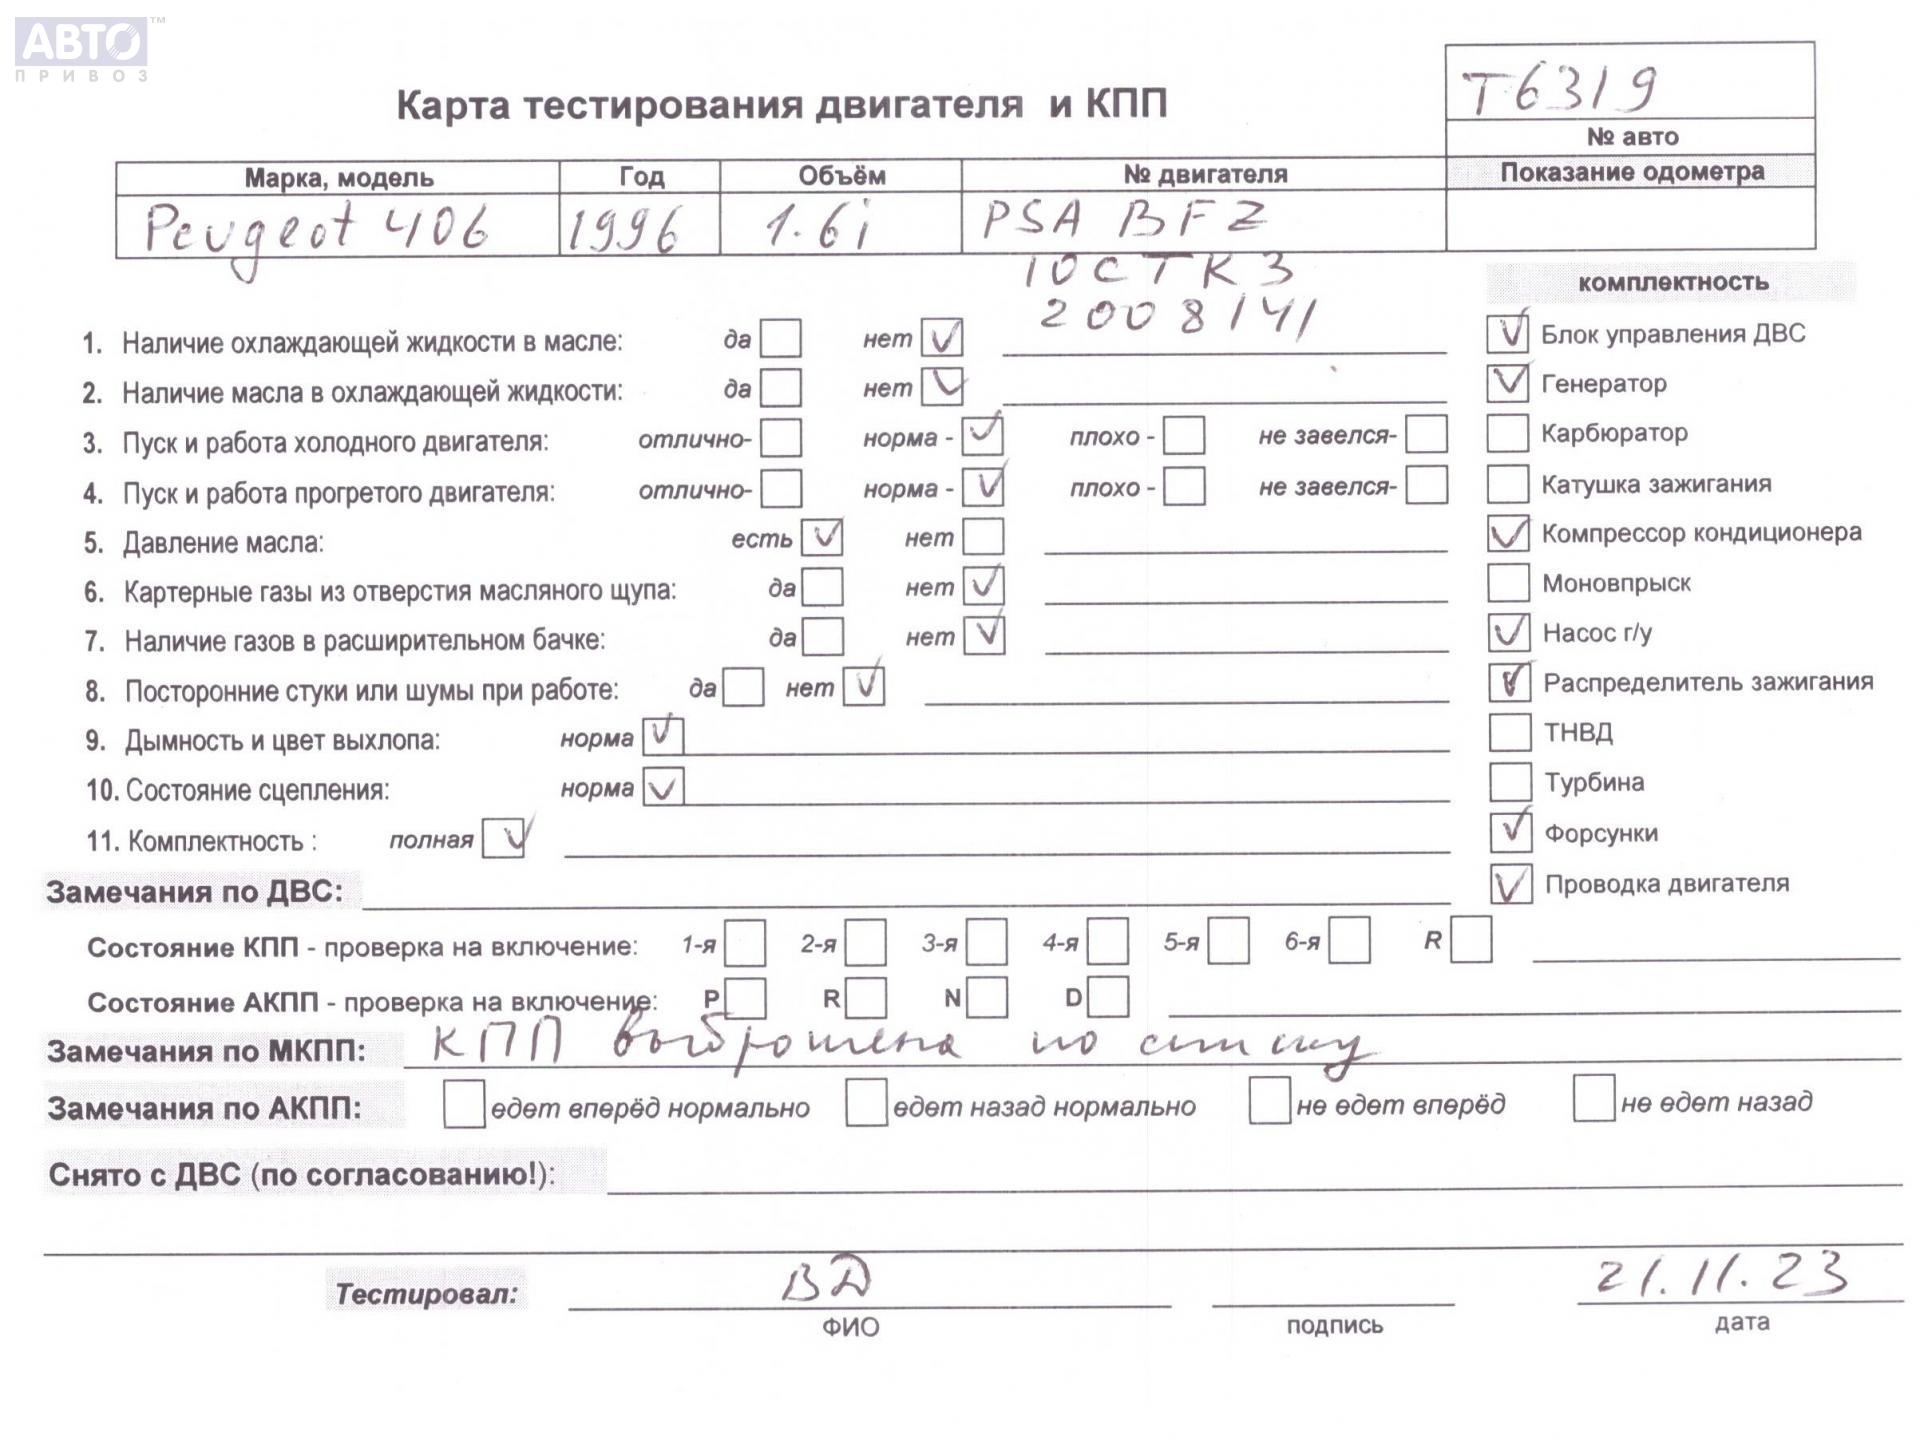 АВТО™
ПРИВОЗ
Т6319
Карта тестирования двигателя и КПП
№ авто
Марка, модель Год Объём № двигателя Показание одометра
Peugeot 406 1996 1.6i PSA BFZ
10CTK3
2008141
комплектность
1. Наличие охлаждающей жидкости в масле: да нет Блок управления ДВС
2. Наличие масла в охлаждающей жидкости: да нет Генератор
3. Пуск и работа холодного двигателя: отлично- норма - плохо - не завелся- Карбюратор
4. Пуск и работа прогретого двигателя: отлично- норма - плохо - не завелся- Катушка зажигания
5. Давление масла: есть нет Компрессор кондиционера
6. Картерные газы из отверстия масляного щупа: да нет Моновпрыск
7. Наличие газов в расширительном бачке: да нет Насос г/у
8. Посторонние стуки или шумы при работе: да нет Распределитель зажигания
9. Дымность и цвет выхлопа: норма ТНВД
10. Состояние сцепления: норма Турбина
11. Комплектность : полная Форсунки
Замечания по ДВС: Проводка двигателя
Состояние КПП - проверка на включение: 1-я 2-я 3-я 4-я 5-я 6-я R
Состояние АКПП - проверка на включение: P R N D
Замечания по МКПП: КПП выброшена по списку
Замечания по АКПП: едет вперёд нормально едет назад нормально не едет вперёд не едет назад
Снято с ДВС (по согласованию!):
Тестировал: ВД 21.11.23
ФИО подпись дата